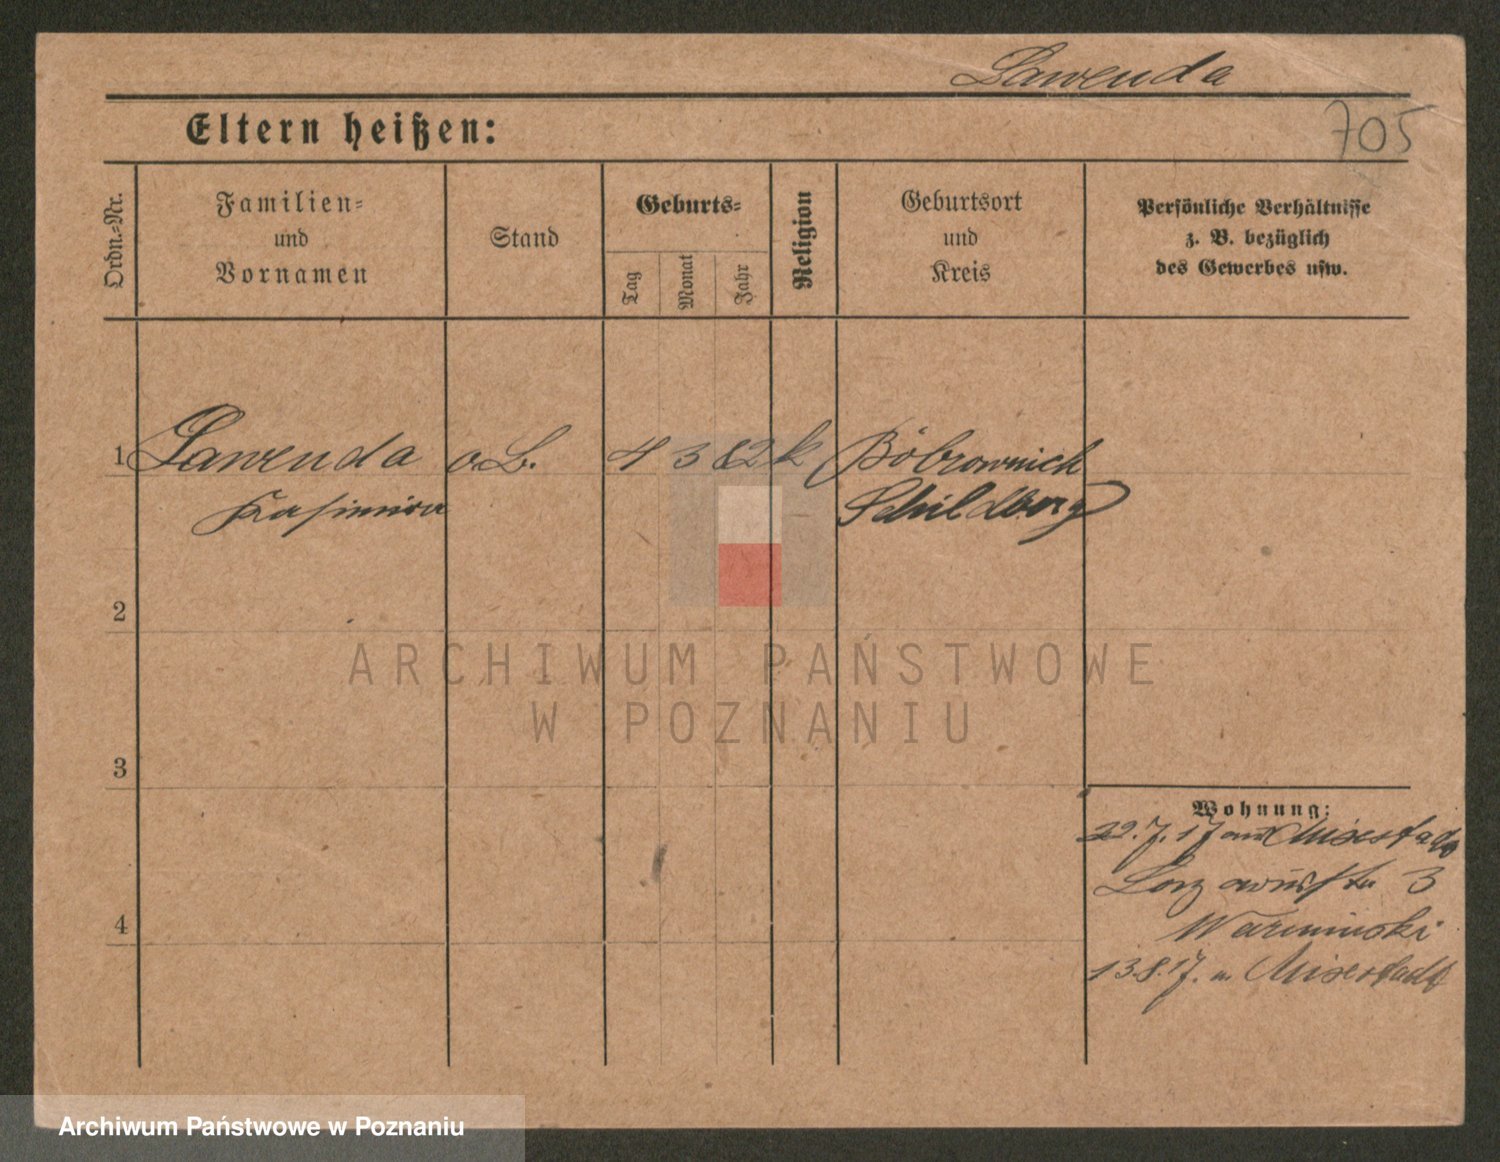 Lawenda
705
Eltern heißen:
Ordn.-Nr.
Familien-
und
Vornamen
Stand
Geburts-
Tag
Monat
Jahr
Religion
Geburtsort
und
Kreis
Persönliche Verhältnisse
z. B. bezüglich
des Gewerbes usw.
1 Lawenda o.B. 4 3 82 k Bobrownick
Kasimira Schildberg
2
ARCHIWUM PAŃSTWOWE
W POZNANIU
3
Wohnung:
22.7.17 aus Mixstadt
3
4
Warminski
13.8.17. n. Mixstadt
Archiwum Państwowe w Poznaniu